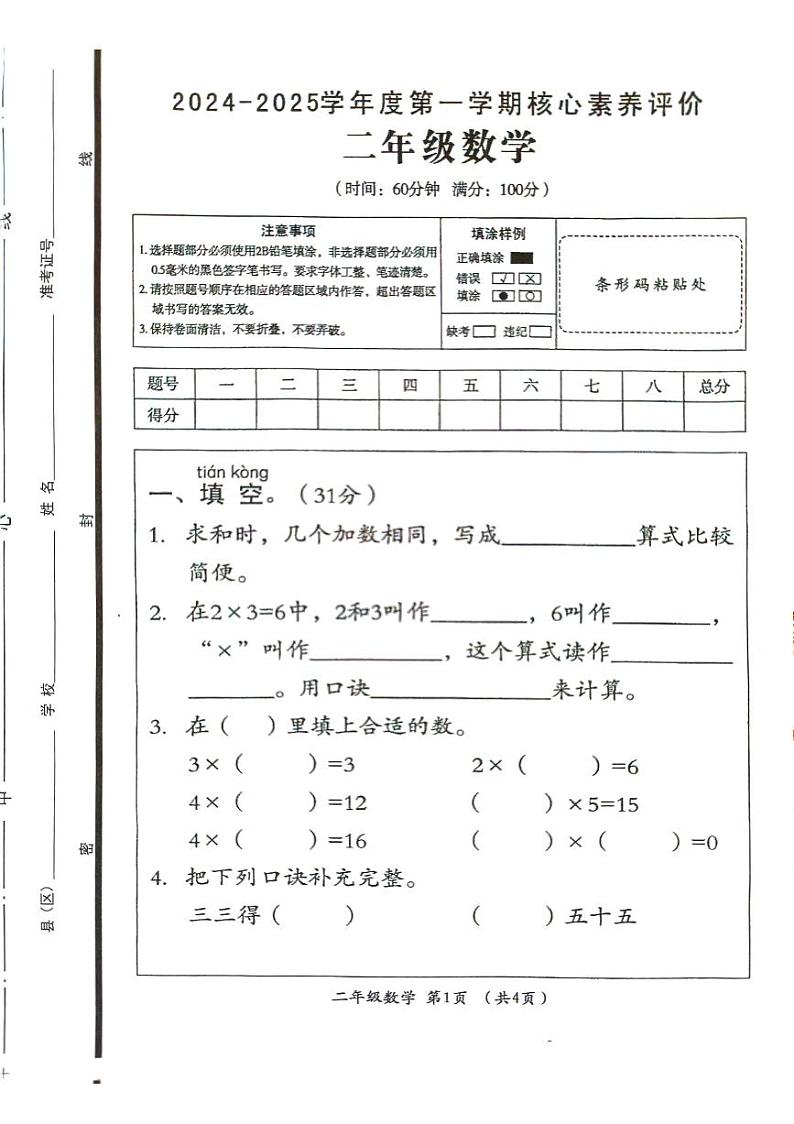 2024-2025学年度第一学期核心素养评价
二年级数学
（时间：60分钟 满分：100分）
注意事项
1.选择题部分必须使用2B铅笔填涂，非选择题部分必须用
0.5毫米的黑色签字笔书写。要求字体工整、笔迹清楚。
2.请按照题号顺序在相应的答题区域内作答，超出答题区
域书写的答案无效。
3.保持卷面清洁，不要折叠，不要弄破。
填涂样例
正确填涂
错误
填涂
缺考 违纪
条形码粘贴处
题号 一 二 三 四 五 六 七 八 总分
得分
tián kòng
一、填空。（31分）
1. 求和时，几个加数相同，写成____算式比较
简便。
2. 在2×3=6中，2和3叫作____，6叫作____，
“×”叫作____，这个算式读作____
____。用口诀____来计算。
3. 在（ ）里填上合适的数。
3×（ ）=3 2×（ ）=6
4×（ ）=12 （ ）×5=15
4×（ ）=16 （ ）×（ ）=0
4. 把下列口诀补充完整。
三三得（ ） （ ）五十五
二年级数学 第1页 （共4页）
县（区） 学校 姓名 准考证号
密 封 线
中 心 线